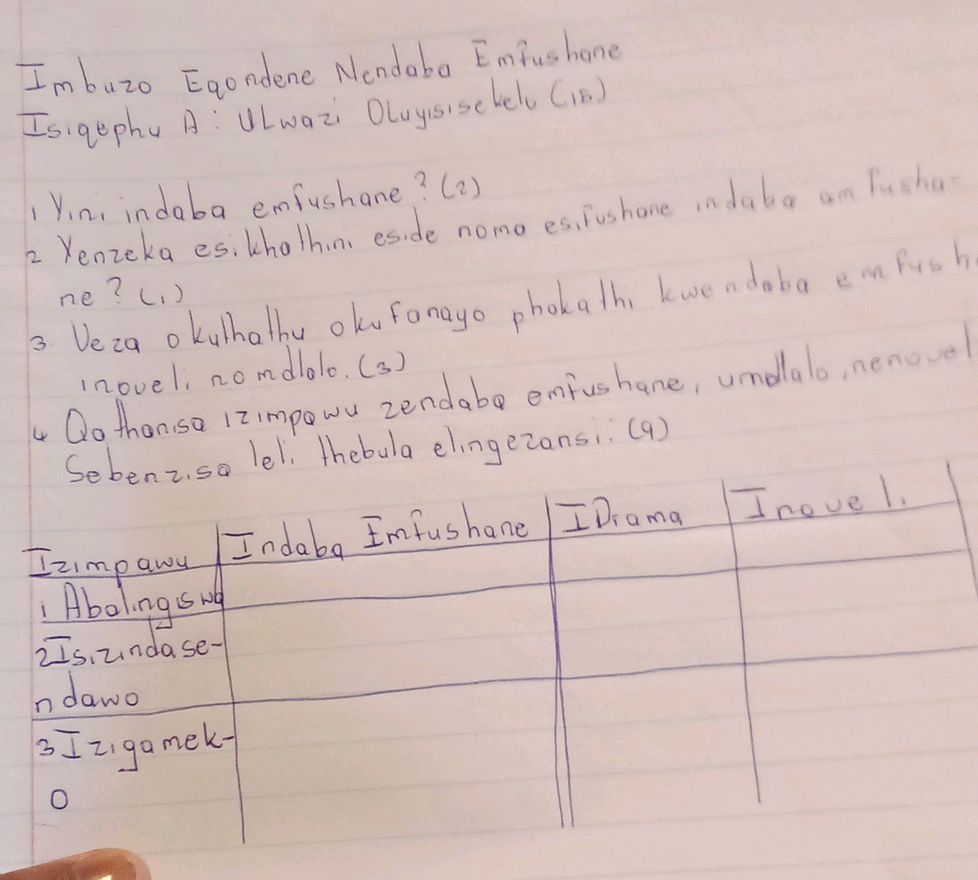 Imbuzo Eqondene Nendaba Emfushane
Isiqephu A: Ulwazi Oluyisisekelo (15)
1 Yini indaba emfushane? (2)
2 Yenzeka esikhathini eside noma esifushane indaba amfusha-
ne? (1)
3 Veza okuthathu okufanayo phakathi kwendaba emfush
inoveli nomdlalo. (3)
4 Qathanisa izimpawu zendaba emfushane, umdlalo, nenovel
Sebenzisa leli thebula elingezansi: (9)
Izimpawu Indaba Emfushane IDrama Inoveli
1 Abalingiswa
2 Isizindase-
ndawo
3 Izigamek-
o